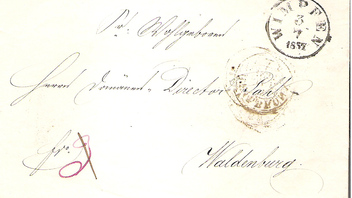 WIMPFEN
3
7
1857
Sr. Wohlgeboren
Herrn Domänen-Director
fr.
Waldenburg.